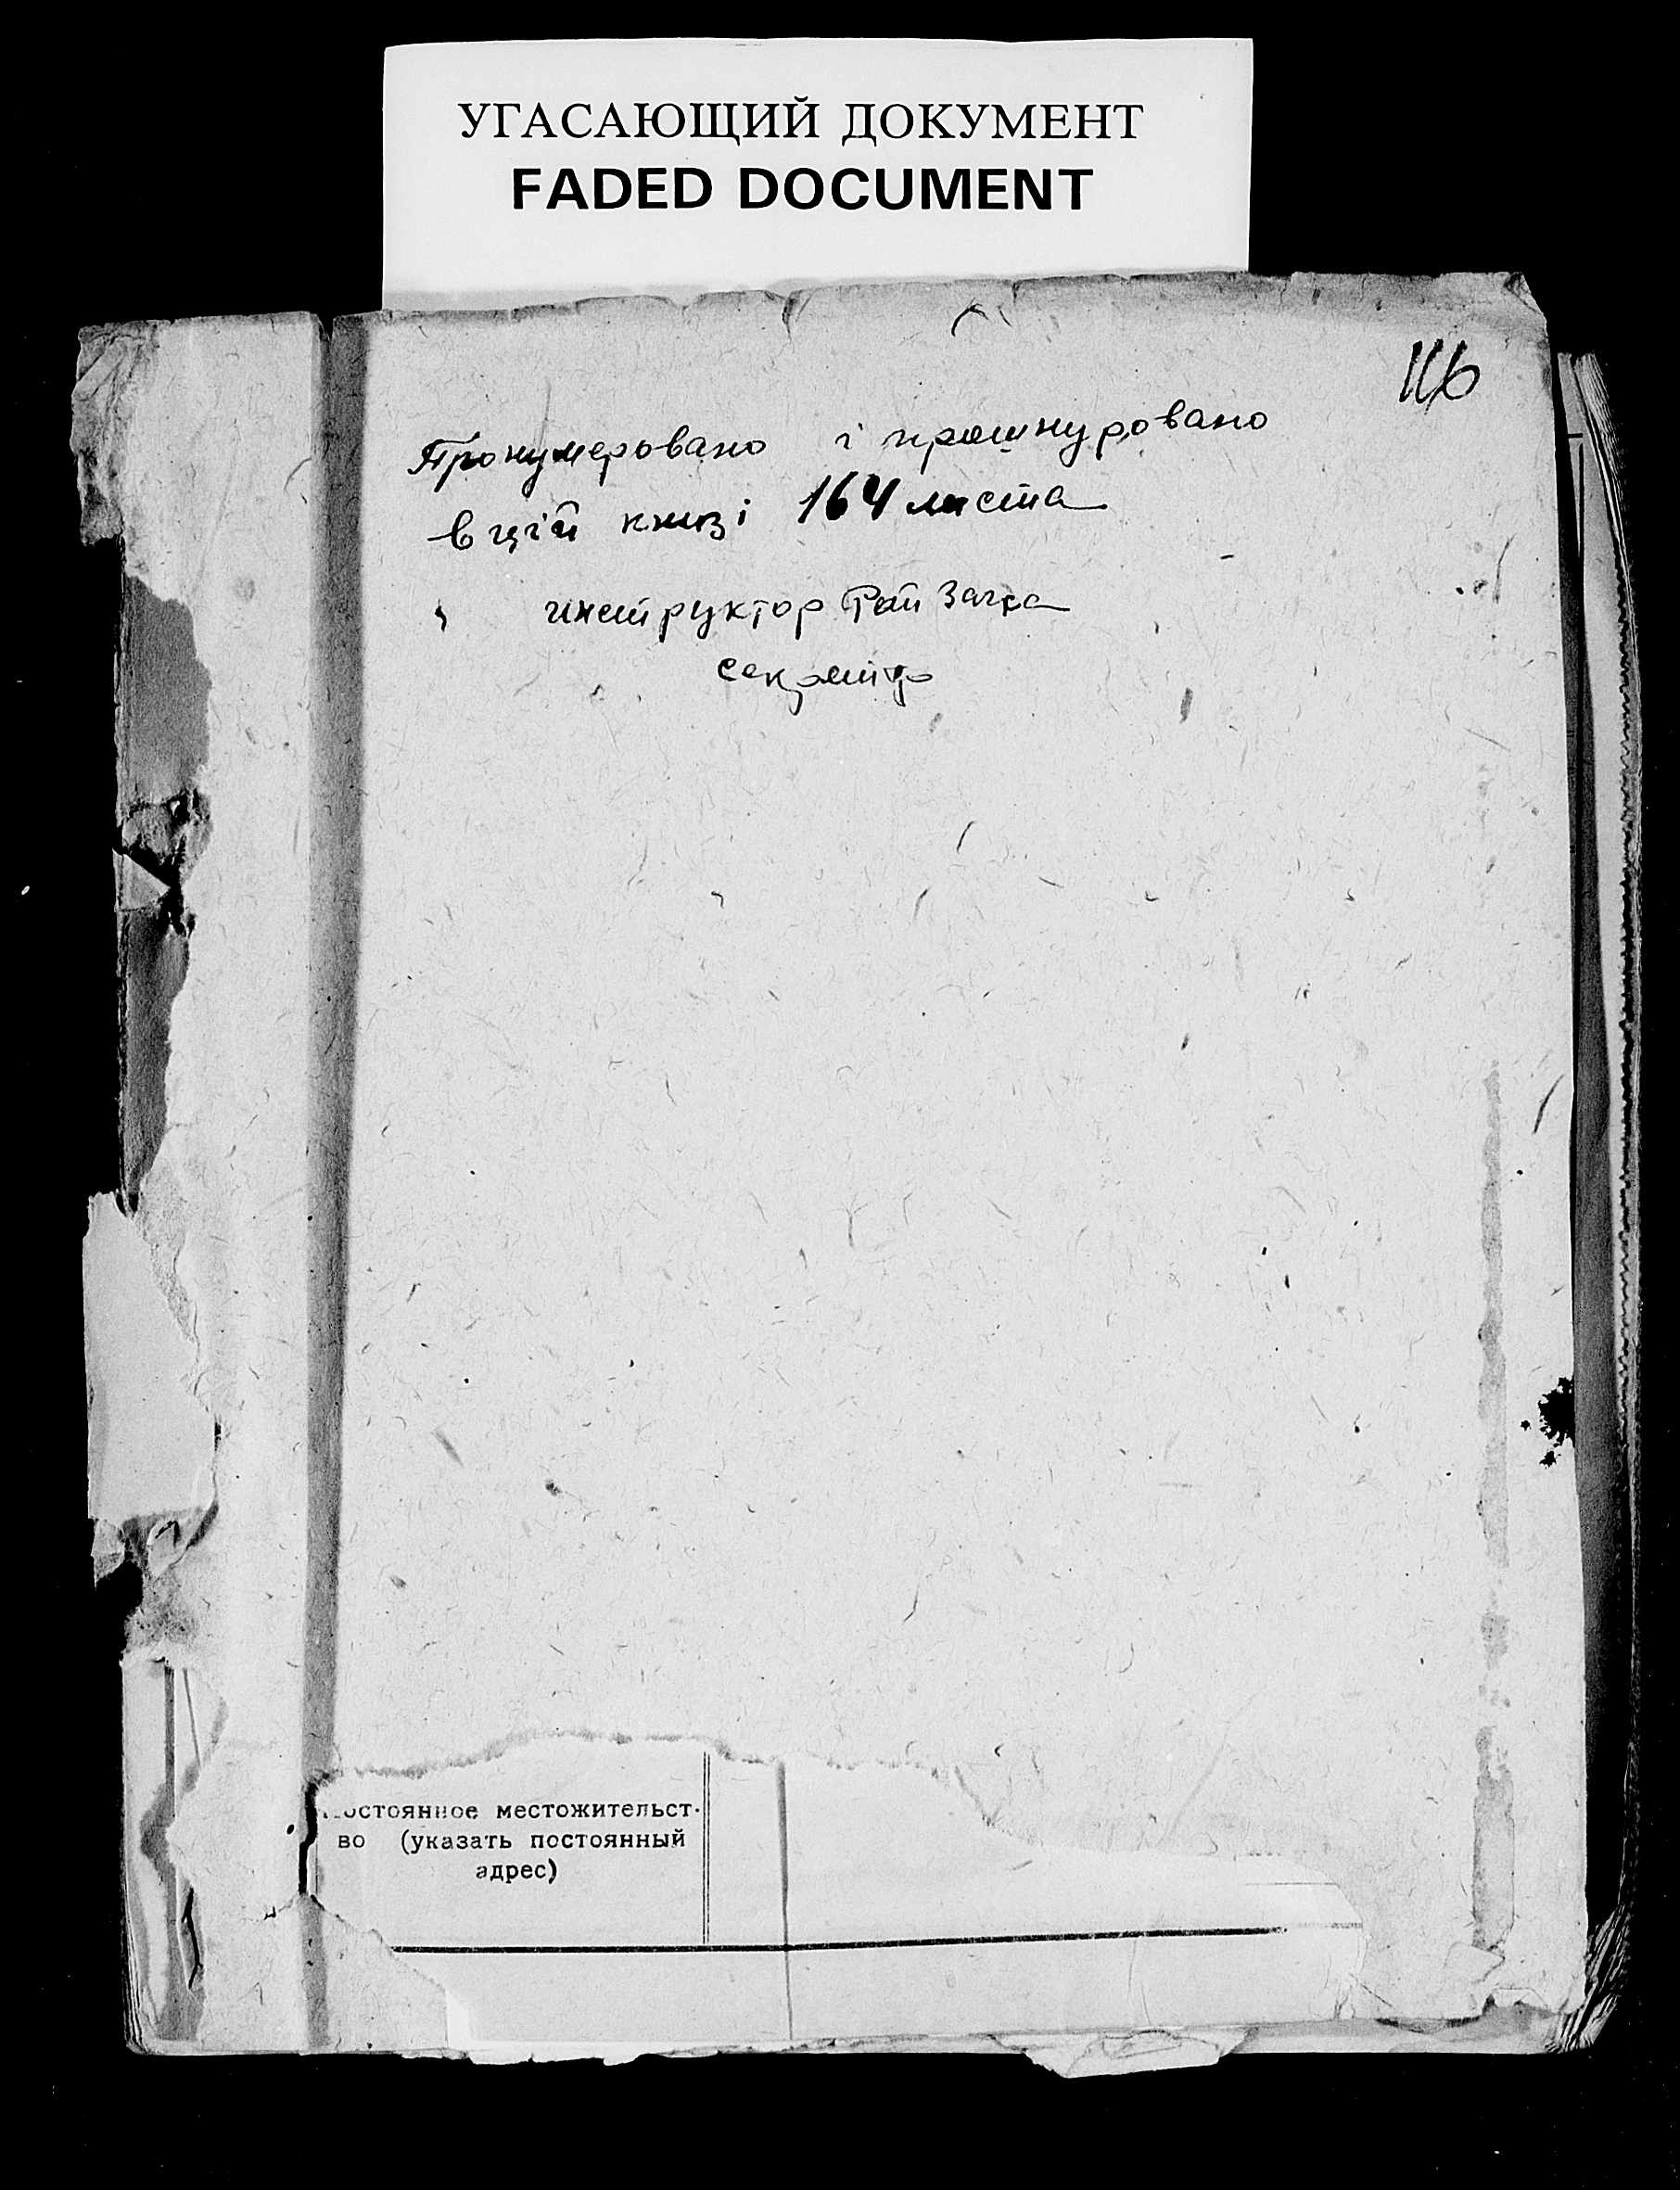 УГАСАЮЩИЙ ДОКУМЕНТ
FADED DOCUMENT
116
Пронумеровано і прошнуровано
в цій книзі 164 листа
инструктор Рай Загса
секретар
Постоянное местожительст-
во (указать постоянный
адрес)